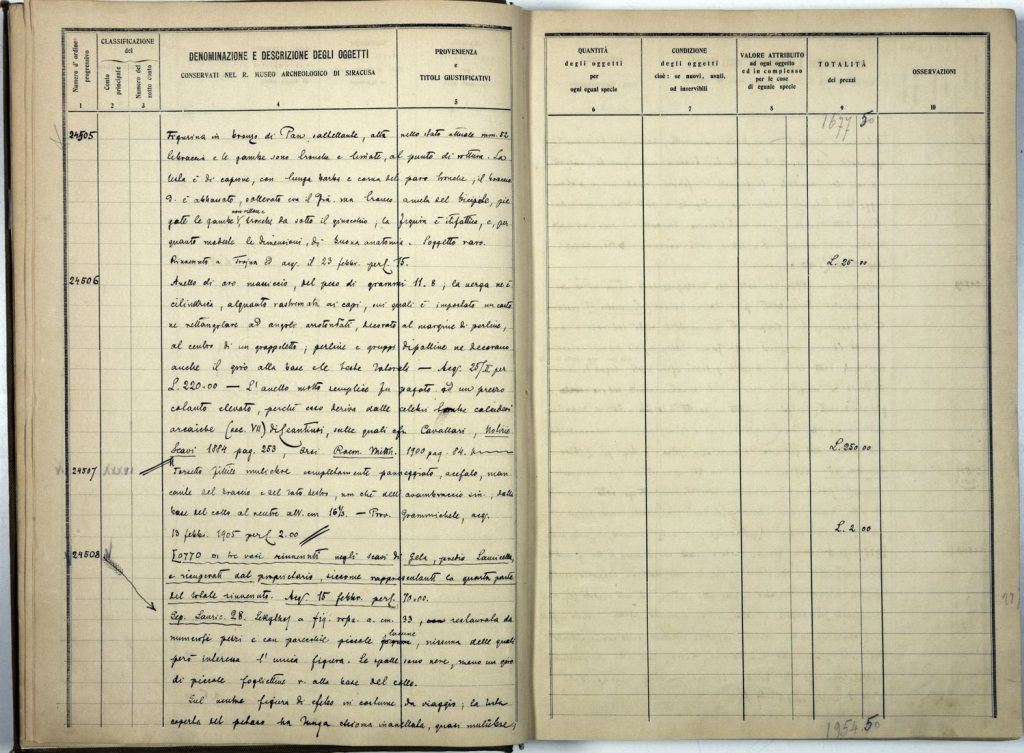 Numero d'ordine progressivo
CLASSIFICAZIONE
del
Conto principale
Numero del sotto conto
DENOMINAZIONE E DESCRIZIONE DEGLI OGGETTI
CONSERVATI NEL R. MUSEO ARCHEOLOGICO DI SIRACUSA
PROVENIENZA
e
TITOLI GIUSTIFICATIVI
1 2 3 4 5
24505 Figurina in bronzo di Pan saltellante, alta nello stato attuale mm. 52
le braccia e le gambe sono tronche e limate, al punto di rottura. La
testa è di caprone, con lunga barba e corna del paro tronche; il braccio
d. è abbassato, sollevato era il ma tronco anche del bicipite, pie
non vellose e
gate le gambe tronche da sotto il ginocchio, la figura è itifallica, e, per
quanto modeste le dimensioni, di buona anatomia. Soggetto raro.
Rinvenuto a Troina ed acq. il 23 febbr. per £. 75.
24506 Anello di oro massiccio, del peso di grammi 11.8; la verga ne è
cilindrica, alquanto rastremata ai capi, sui quali è impostato un casto
ne rettangolare ad angoli arrotondati, decorato al margine di perline,
al centro di un grappoletto; perline e gruppi di palline ne decorano
anche il giro alla base e le teste laterali — Acq. 25/II per
L. 220.00 — L'anello molto semplice fu pagato ad un prezzo
alquanto elevato, perchè esso deriva dalle celebri tombe calcidesi
arcaiche (sec. VII) di Leontinoi, sulle quali cfr. Cavallari, Notizie
Scavi 1884 pag. 253, Orsi Roem. Mitth. 1900 pag. 84.
24507 Torsetto fittile muliebre completamente panneggiato, acefalo, man
cante del braccio e del lato destro, non chè dell'avambraccio sin., dalla
base del collo al ventre alt. cm 16½. — Prov. Grammichele, acq.
13 febbr. 1905 per £ 2.00
24508 Lotto di tre vasi rinvenuti negli scavi di Gela, predio Lauricella,
e ricuperati dal proprietario, siccome rappresentanti la quarta parte
del totale rinvenuto. Acq. 15 febbr. per £. 70.00.
Sep. Lauric. 28. Lekythos a fig. rosse a. cm. 33, restaurata da
lacune
numerosi pezzi e con parecchie piccole nissuna delle quali
però interessa l'unica figura. Le spalle sono nere, meno un giro
di piccole foglioline r. alla base del collo.
Sul ventre figura di efebo in costume da viaggio; la testa
coperta del petaso ha lunga chioma inanellata, quasi muliebre;
QUANTITÀ
degli oggetti
per
ogni egual specie
6
CONDIZIONE
degli oggetti
cioè: se nuovi, usati,
od inservibili
7
VALORE ATTRIBUITO
ad ogni oggetto
ed in complesso
per le cose
di eguale specie
8
TOTALITÀ
dei prezzi
9
OSSERVAZIONI
10
1677 50
L. 25 00
L. 250 00
L. 2 00
1954 50